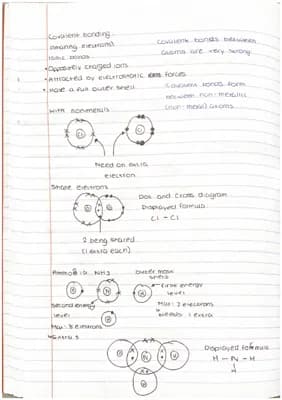 Covalent bonding
Sharing electrons
Ionic bonds
Covalent bonds between
atoms are very strong
• Oppositely charged ions
• Attracted by electrostatic forces
• Have a full outer shell
Covalent bonds form
between non-metallic
(non-metal) atoms
With nonmetals
Cl
Cl
Need an extra
electron
Share electrons
Dot and Cross diagram
Displayed formula
Cl - Cl
2 being shared
(1 extra each)
NH3
Outer most
shells
First energy
level
Max: 2 electrons
Needs 1 extra
Second energy
level
Max: 8 electrons
H
N
H
H
Displayed formula
H - N - H
H